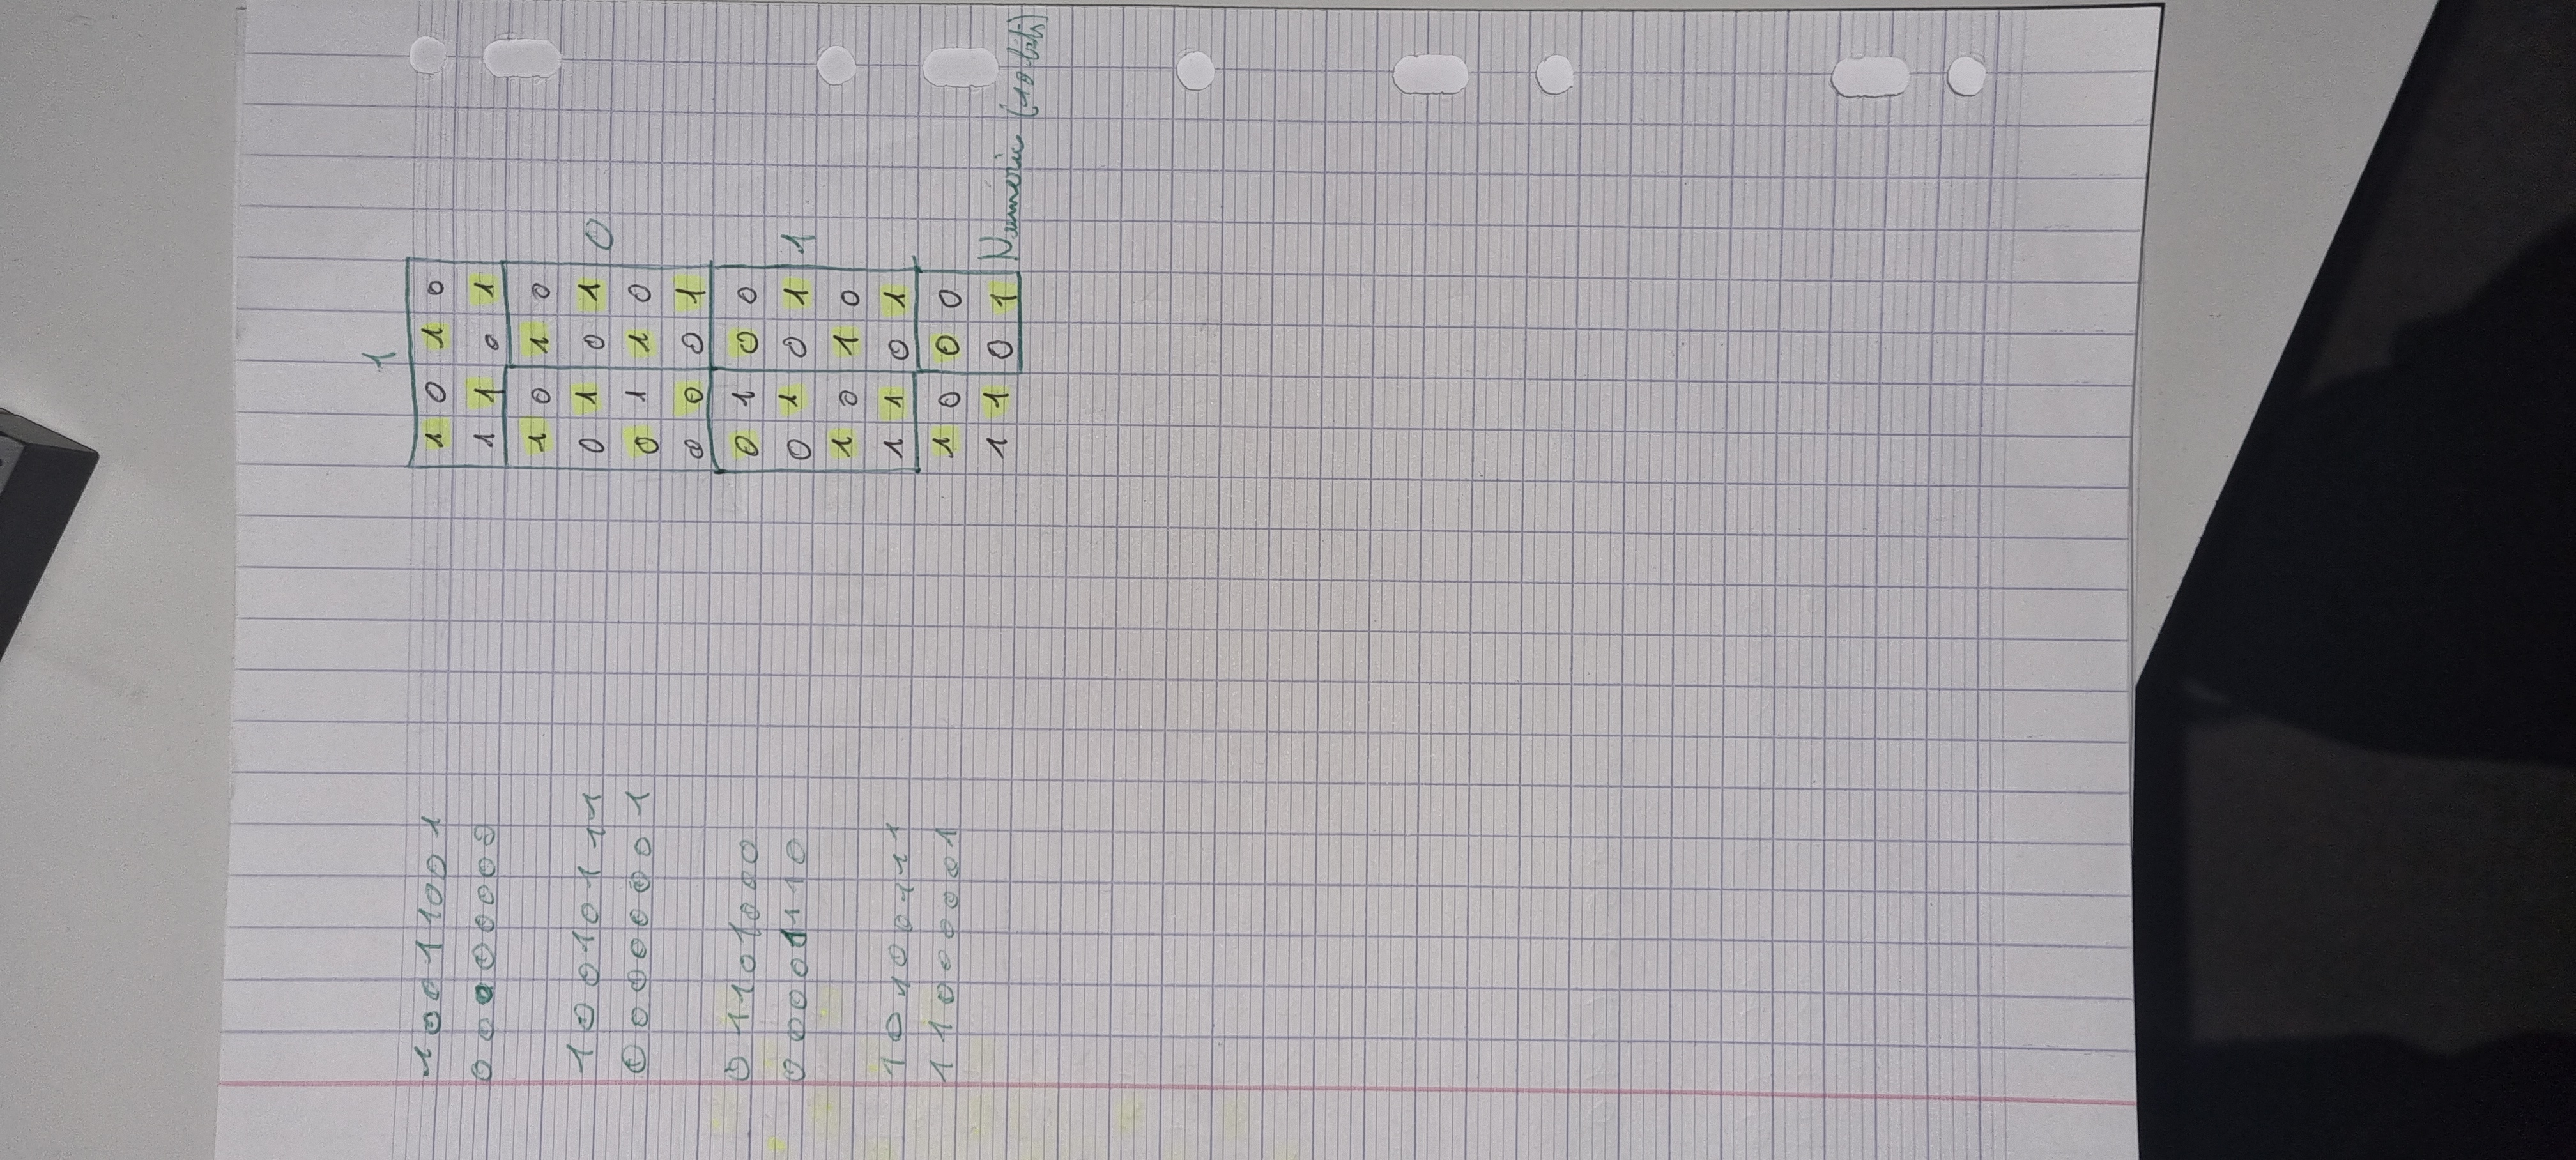 1
10011001
00000000
10010111
00000001
01101000
00001110
10100111
11000001
1 0 1 0
1 1 0 1
1 0 1 0
0 1 0 1 0
0 1 1 0
0 0 0 1
0 1 0 0
0 1 0 1 1
1 0 1 0
1 1 0 1
1 0 0 0
1 1 0 1 Numeric (10 bits)